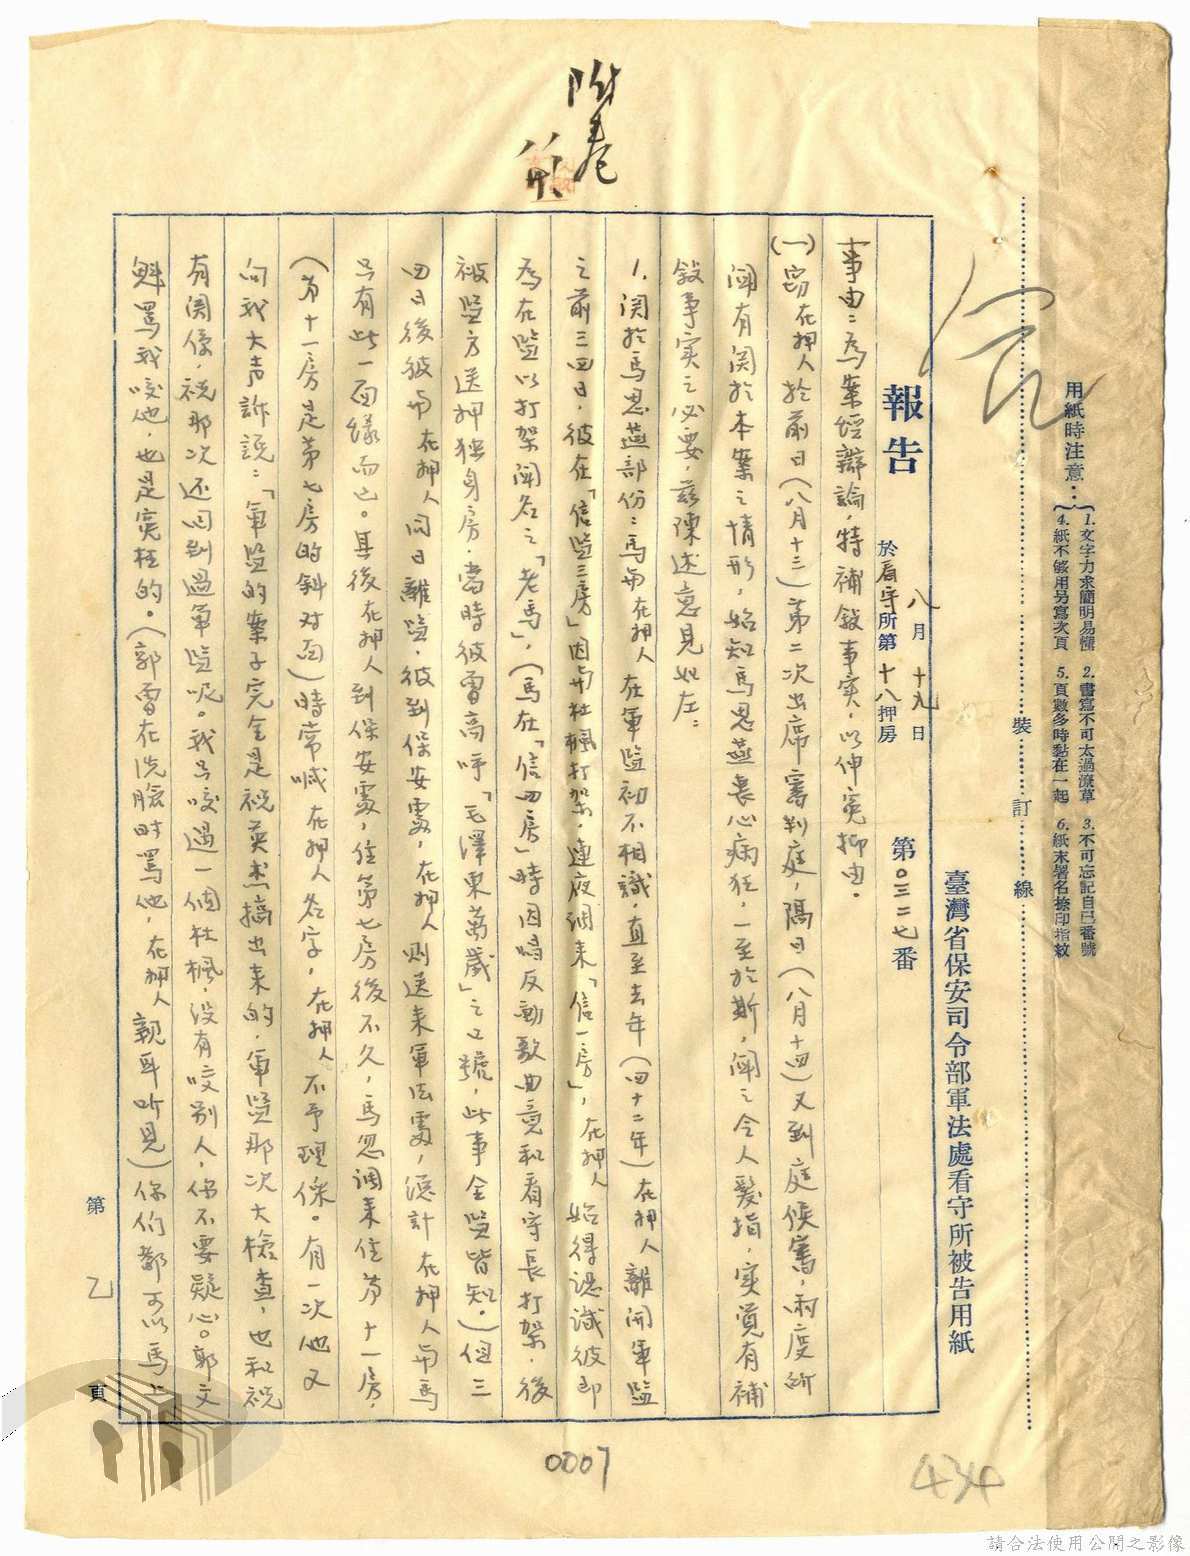 附卷
用紙時注意：
1.文字力求簡明易懂 2.書寫不可太過潦草 3.不可忘記自己番號
4.紙不够用另寫次頁 5.頁數多時黏在一起 6.紙末署名捺印指紋
裝訂線
臺灣省保安司令部軍法處看守所被告用紙
報告 八月十九日
於看守所第十八押房 第〇三二七番
事由：為案經辯論，特補敍事実，以伸寃抑由。
(一)窃在押人於前日(八月十三)第二次出席審判庭，隔日(八月十四)又到庭候審，兩度所
聞有関於本案之情形，始知馬思燕丧心病狂，一至於斯，聞之令人髮指，実覚有補
敍事実之必要，茲陳述意見如左：
1.関於馬思燕部份：馬與在押人在軍監初不相識，直至去年(四十二年)在押人離開軍監
之前三四日，彼在「信監三房」因與杜楓打架，連夜調来「信一房」，在押人始得認識彼即
為在監以打架闻名之「老馬」，(馬在「信四房」時因唱反動歌曲竟和看守長打架，後
被監方送押独身房，當時彼曾高呼「毛澤東萬歲」之口號，此事全監皆知。)但三
四日後彼與在押人同日離監，彼到保安處，在押人則送来軍法處，總計在押人與馬
只有此一面緣而已。其後在押人到保安處，住第七房後不久，馬忽調来住第十一房，
(第十一房是第七房的斜对面)時常喊在押人名字，在押人不予理保。有一次他又
向我大声訴説：「軍監的案子完全是祝英杰搞出来的，軍監那次大檢查，也和祝
有関係，祝那次还回到過軍監呢。我只咬過一個杜楓，没有咬别人，你不要疑心。郭文
魁罵我咬他，也是寃枉的。(郭曾在洗臉时罵他，在押人親耳听見)你们都可以馬上
第乙頁
0007
434
請合法使用公開之影像